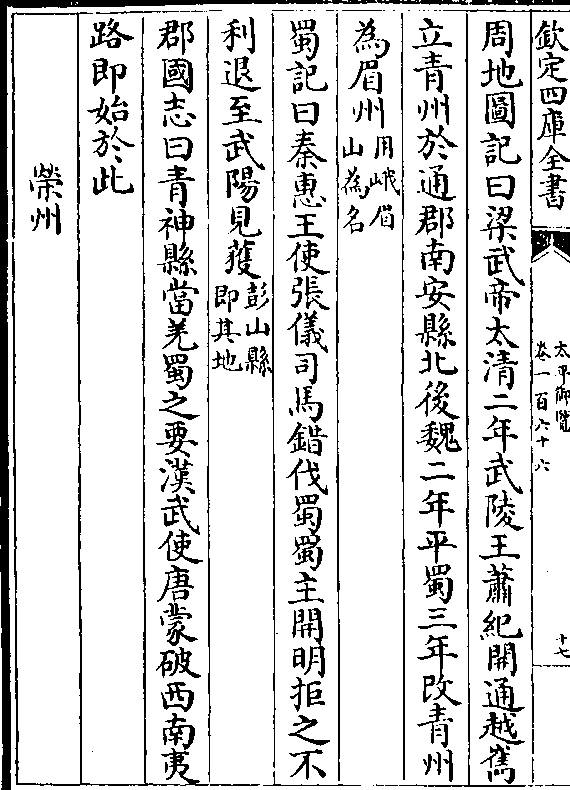 欽定四庫全書
太平御覽
卷一百六十六
十七
周地圖記曰梁武帝太清二年武陵王蕭紀開通越嶲
立青州於通郡南安縣北後魏二年平蜀三年改青州
為眉州用峨眉
山為名
蜀記曰秦惠王使張儀司馬錯伐蜀蜀主開明拒之不
利退至武陽見獲彭山縣
即其地
郡國志曰青神縣當羌蜀之要漢武使唐蒙破西南夷
路即始於此
榮州